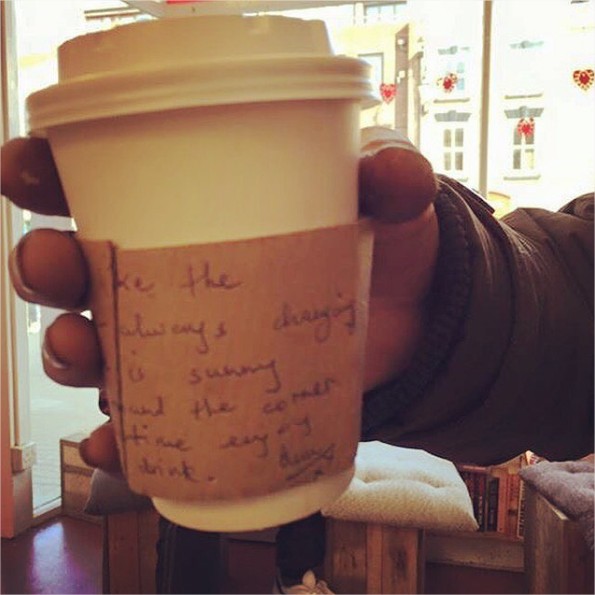 ke the
always changing
is sunny
ound the corner
time enjoy
drink.